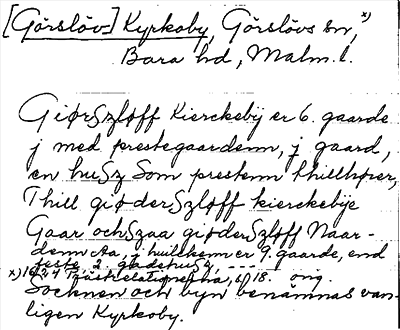 [Görslövs] Kyrkoby, Görslövs sn, x)
Bara hd, Malm. l.
Giørszløff Kierckebÿ er 6. gaarde
j med prestegaardenn, j gaard,
en husz som prestenn thillhører,
Thill giøderszløff kierckebÿe
Gaar ochszaa giøderszløff Naar-
denn Aa, j huilckenn er 9. gaarde, end
feste, 2. gadehusz, ----
x) 1624 orig.
Socknen och byn benämnas van-
ligen Kyrkoby.